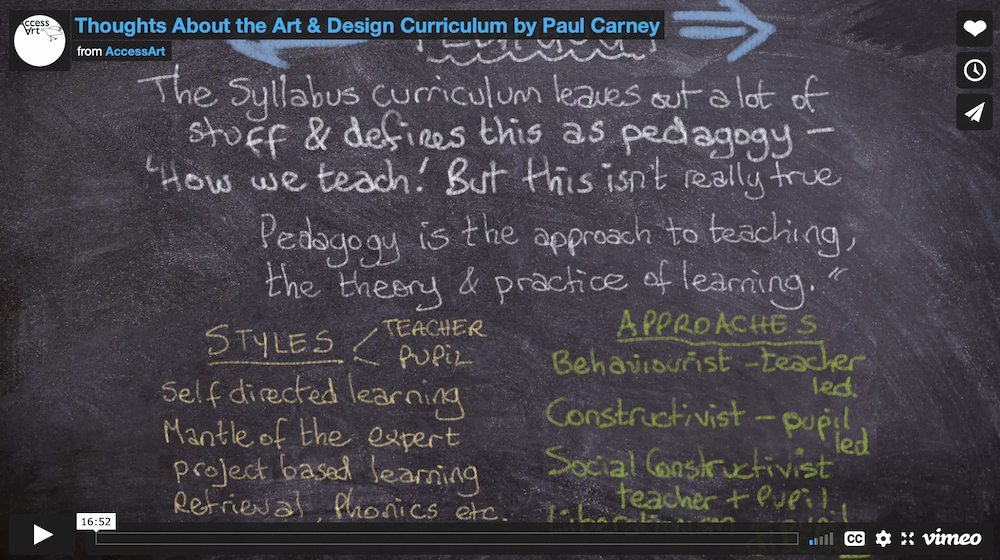 Access
Art
Thoughts About the Art & Design Curriculum by Paul Carney
from AccessArt
The Syllabus curriculum leaves out a lot of
stuff & defines this as pedagogy –
'How we teach! But this isn't really true
Pedagogy is the approach to teaching,
the theory & practice of learning."
STYLES
TEACHER
PUPIL
Self directed learning
Mantle of the expert
project based learning
Retrieval, Phonics etc.
APPROACHES
Behaviourist – teacher
led
Constructivist – pupil
led
Social Constructivist
teacher + Pupil
16:52
CC
vimeo